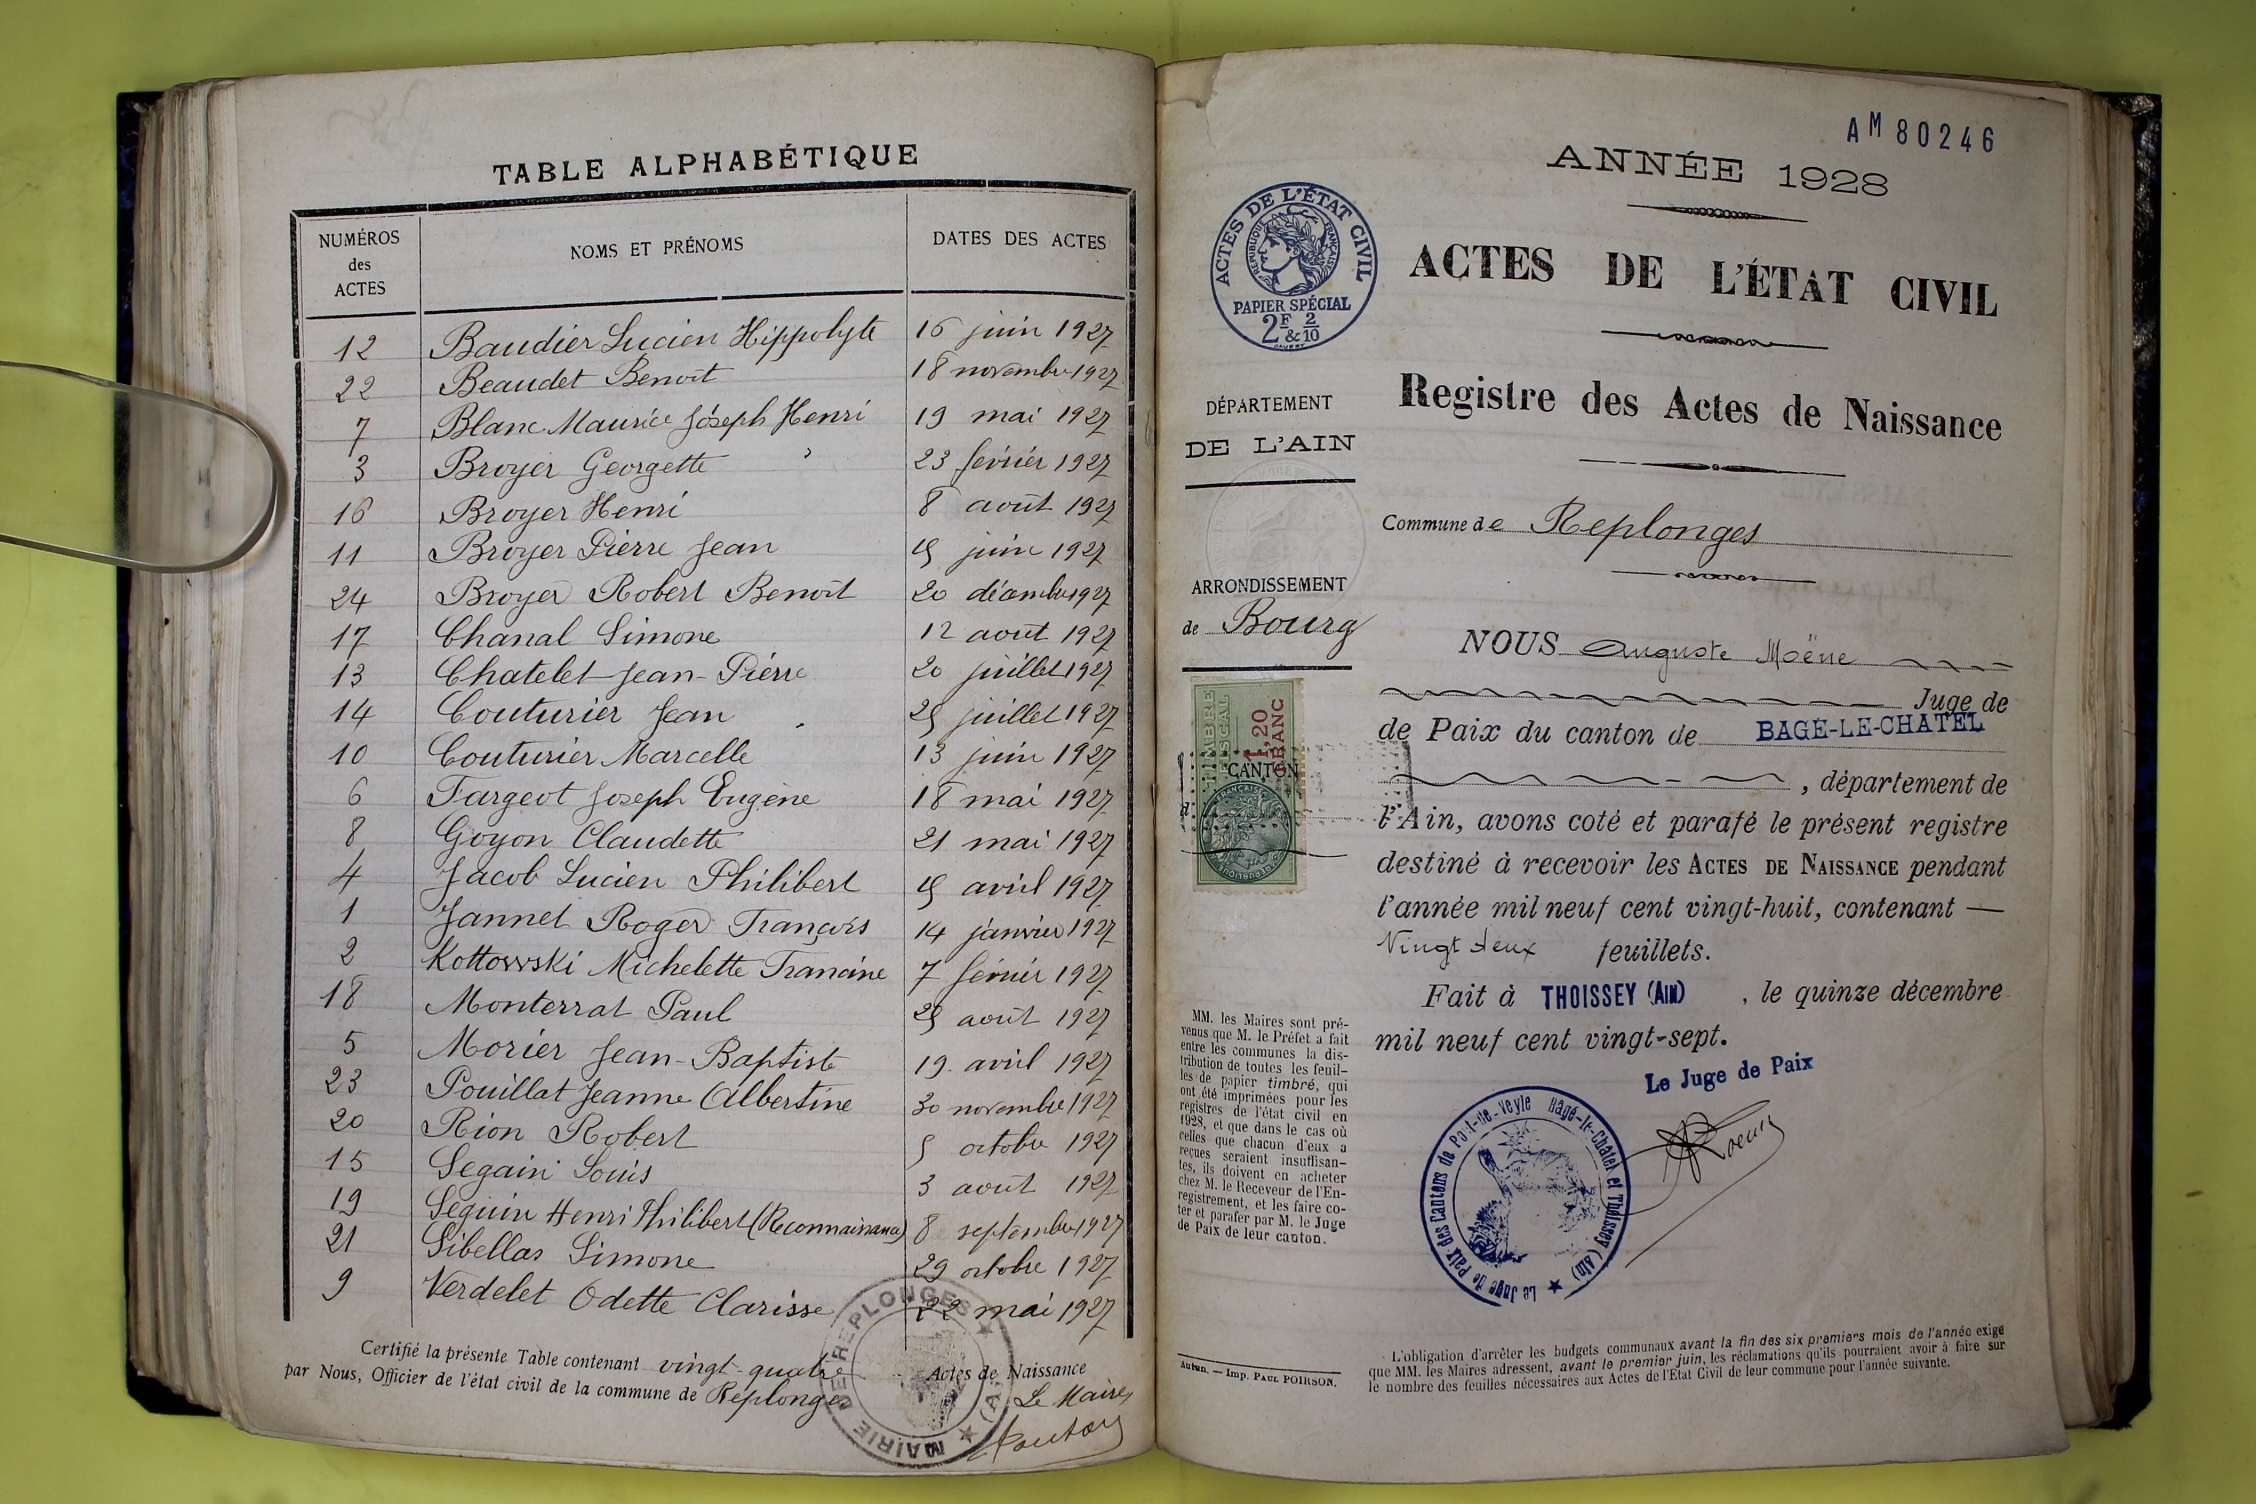 TABLE ALPHABÉTIQUE
NUMÉROS des ACTES NOMS ET PRÉNOMS DATES DES ACTES
12 Baudier Lucien Hippolyte 16 juin 1927
22 Beaudet Benoit 18 novembre 1927
7 Blanc Maurice Joseph Henri 19 mai 1927
3 Broyer Georgette 23 février 1927
16 Broyer Henri 8 août 1927
11 Broyer Pierre Jean 15 juin 1927
24 Broyer Robert Benoît 20 décembre 1927
17 Chanal Simone 12 août 1927
13 Chatelet Jean-Pierre 20 juillet 1927
14 Couturier Jean 25 juillet 1927
10 Couturier Marcelle 13 juin 1927
6 Fargeot Joseph Eugène 18 mai 1927
8 Goyon Claudette 21 mai 1927
4 Jacob Lucien Philibert 15 avril 1927
1 Jannet Roger François 14 janvier 1927
2 Kottowski Michelette Francine 7 février 1927
18 Monterrat Paul 25 août 1927
5 Morier Jean-Baptiste 19 avril 1927
23 Pouillat Jeanne Albertine 30 novembre 1927
20 Rion Robert 5 octobre 1927
15 Segain Louis 3 août 1927
19 Seguin Henri Philibert (Reconnaissance) 8 septembre 1927
21 Sibellas Simone 29 octobre 1927
9 Verdelet Odette Clarisse 22 mai 1927
Certifié la présente Table contenant vingt-quatre Actes de Naissance
par Nous, Officier de l'état civil de la commune de Replonges
Le Maire,
MAIRIE DE REPLONGES (AIN)
AM 80246
ANNÉE 1928
ACTES DE L'ÉTAT CIVIL
RÉPUBLIQUE FRANÇAISE
PAPIER SPÉCIAL
2F & 2/10
ACTES DE L'ÉTAT CIVIL
Registre des Actes de Naissance
DÉPARTEMENT
DE L'AIN
Commune de Replonges
ARRONDISSEMENT
de Bourg
TIMBRE FISCAL
1,20
FRANC
CANTON
NOUS Auguste Moëne
Juge de
de Paix du canton de BAGÉ-LE-CHATEL
, département de
l'Ain, avons coté et parafé le présent registre
destiné à recevoir les ACTES DE NAISSANCE pendant
l'année mil neuf cent vingt-huit, contenant —
Vingt deux feuillets.
Fait à THOISSEY (AIN) , le quinze décembre
mil neuf cent vingt-sept.
Le Juge de Paix
Le Juge de Paix des Cantons de Pont-de-Veyle Bagé-le-Châtel et Thoissey (Ain)
MM. les Maires sont pré-
venus que M. le Préfet a fait
entre les communes la dis-
tribution de toutes les feuil-
les de papier timbré, qui
ont été imprimées pour les
registres de l'état civil en
1928, et que dans le cas où
celles que chacun d'eux a
reçues seraient insuffisan-
tes, ils doivent en acheter
chez M. le Receveur de l'En-
registrement, et les faire co-
ter et parafer par M. le Juge
de Paix de leur canton.
Autun. — Imp. PAUL POIRSON.
L'obligation d'arrêter les budgets communaux avant la fin des six premiers mois de l'année exige
que MM. les Maires adressent, avant le premier juin, les réclamations qu'ils pourraient avoir à faire sur
le nombre des feuilles nécessaires aux Actes de l'État Civil de leur commune pour l'année suivante.